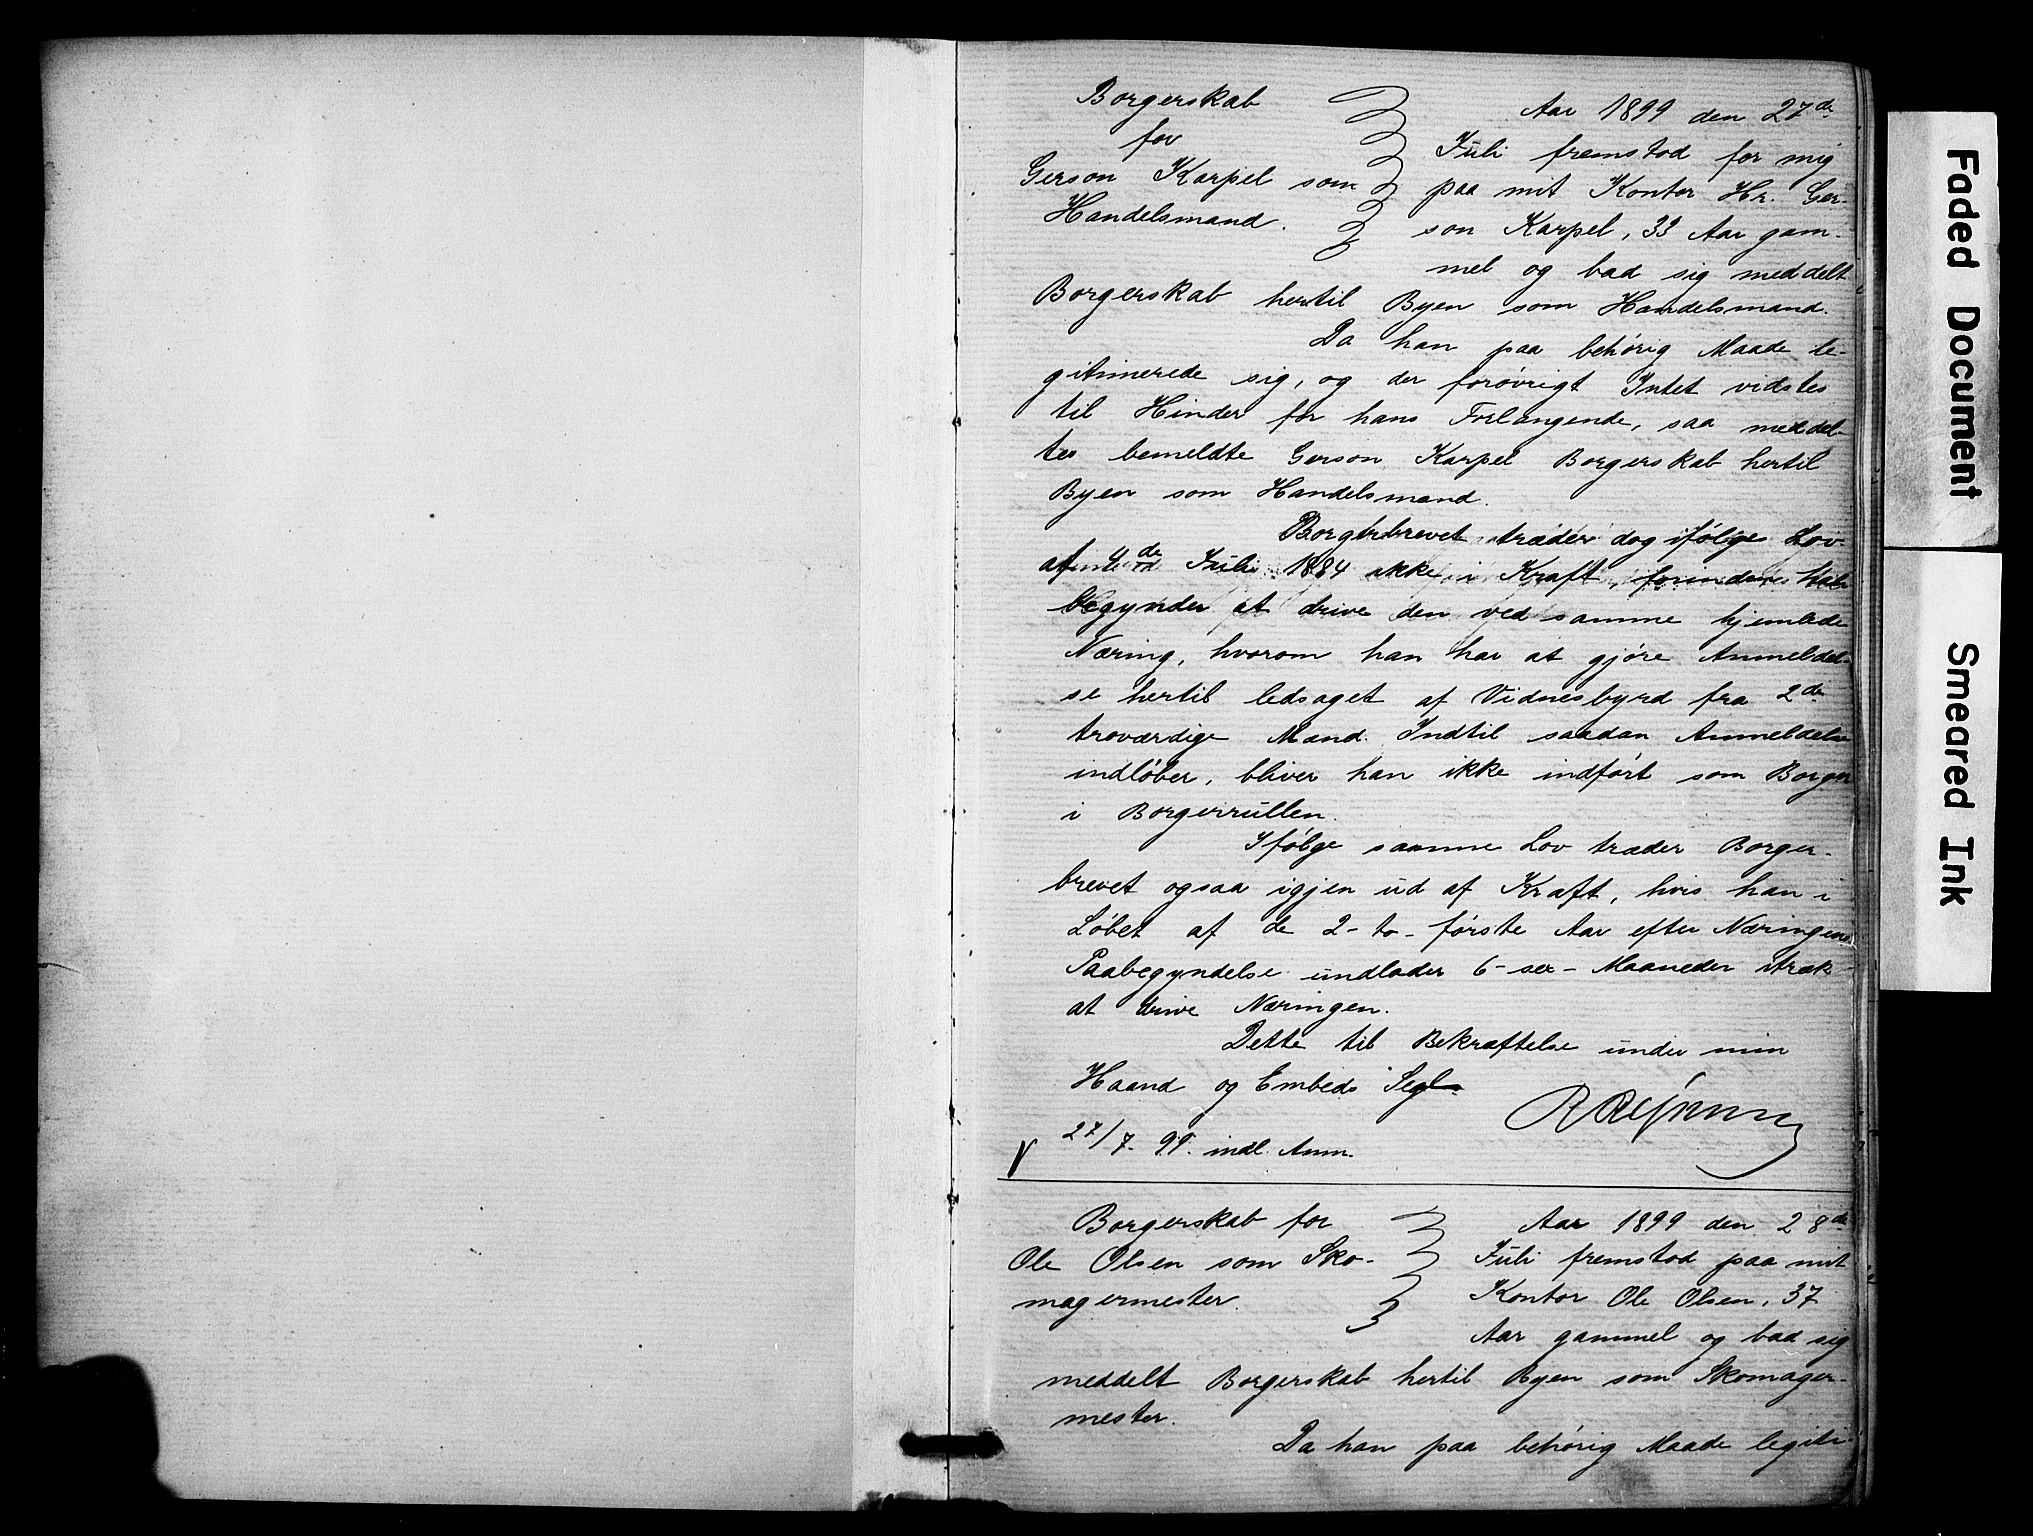 Borgerskab
for
Gerson Karpel som
Handelsmand.
Aar 1899 den 27de
Juli fremstod for mig
paa mit Kontor Hr. Ger-
son Karpel, 33 Aar gam-
mel og bad sig meddelt
Borgerskab hertil Byen som Handelsmand.
Da han paa behørig Maade le-
gitimerede sig, og der forøvrigt Intet vidstes
til Hinder for hans Forlangende, saa meddel-
tes bemeldte Gerson Karpel Borgerskab hertil
Byen som Handelsmand.
Borgerbrevet træder dog ifølge Lov
af de Juli 1884 ikke i Kraft, forinden han
begynder at drive den ved samme hjemlede
Næring, hvorom han har at gjøre Anmeldel-
se hertil ledsaget af Vidnesbyrd fra 2de
troværdige Mænd. Indtil saadan Anmeldelse
indløber, bliver han ikke indført som Borger
i Borgerrullen.
Ifølge samme Lov træder Borger-
brevet ogsaa igjen ud af Kraft, hvis han i
Løbet af de 2-to-første Aar efter Næringens
Paabegyndelse undlader 6-sex-Maaneder itræk
at drive Næringen.
Dette til Bekræftelse under min
Haand og Embeds Segl.
27/7. 99. indl. Anm.
Borgerskab for
Ole Olsen som Sko-
magermester.
Aar 1899 den 28de
Juli fremstod paa mit
Kontor Ole Olsen, 37
Aar gammel og bad sig
meddelt Borgerskab hertil Byen som Skomager-
mester.
Da han paa behørig Maade legiti-
Faded Document
Smeared Ink